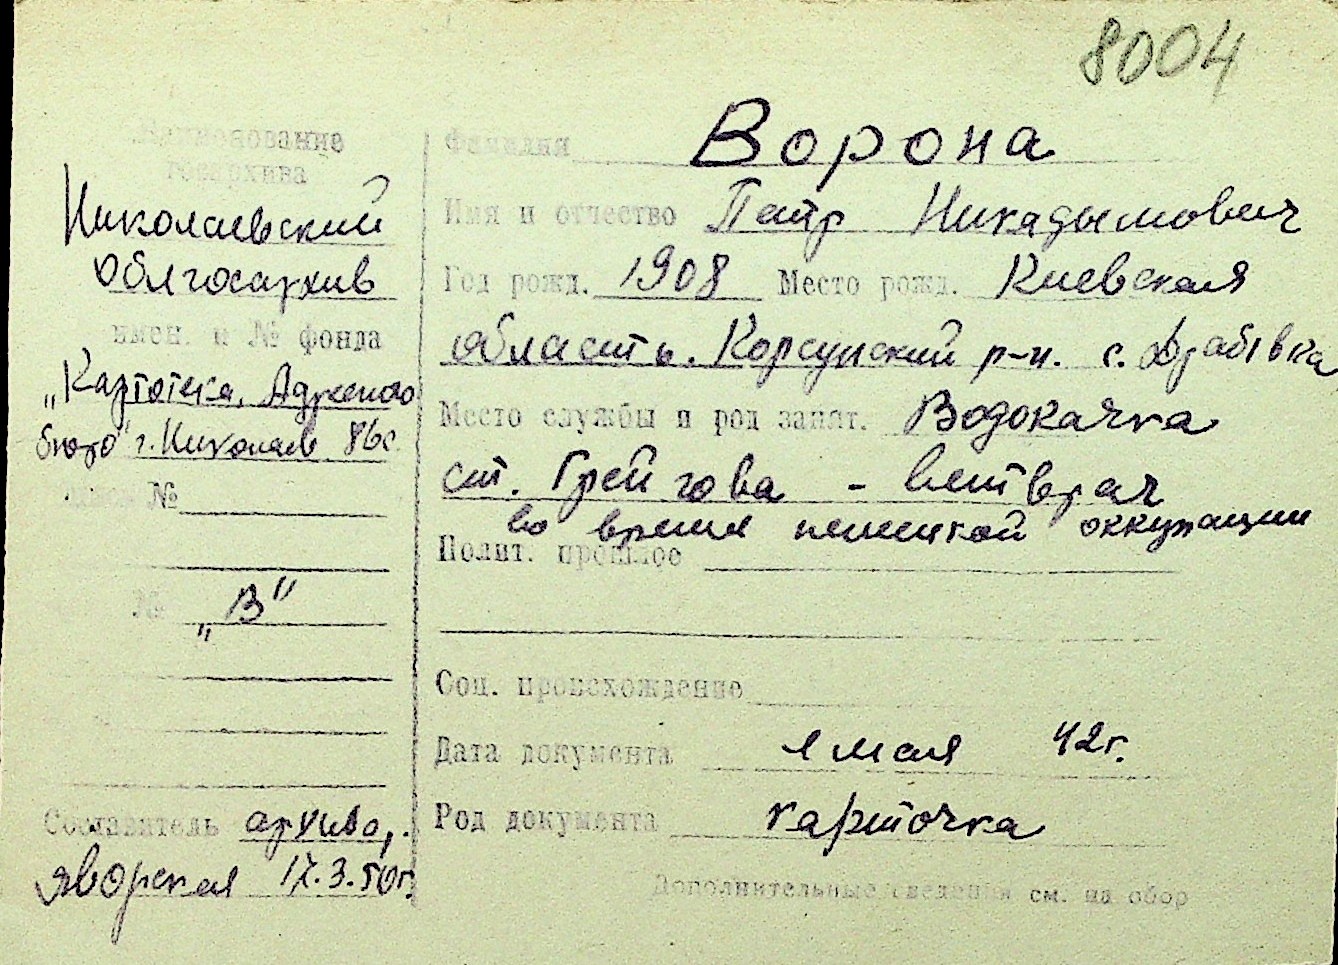 8004
Наименование
госархива
Николаевский
облгосархив
имен. и № фонда
„Картотека, Адресного
бюро" г. Николаев
№
№ „В"
Составитель архивар.
Яворская 17.3.50г.
Фамилия Ворона
Имя и отчество Петр Никадымович
Год рожд. 1908 Место рожд. Киевская
область. Корсунский р-н. с. Драбівка
Место службы и род занят. Водокачка
ст. Грейгова - ветврач
во время немецкой оккупации
Полит. прошлое
Соц. происхождение
Дата документа 1 мая 42г.
Род документа карточка
Дополнительные сведения см. на обор